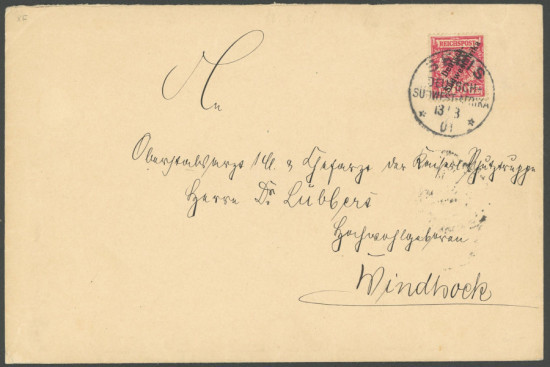 REICHSPOST
SEEIS
DEUTSCH-
SÜDWESTAFRIKA
13/3
01
An
Oberstabsarzt u. Chefarzt der Kaiserl. Schutztruppe
Herrn Dr. Lübbert
Hochwohlgeboren
Windhoek